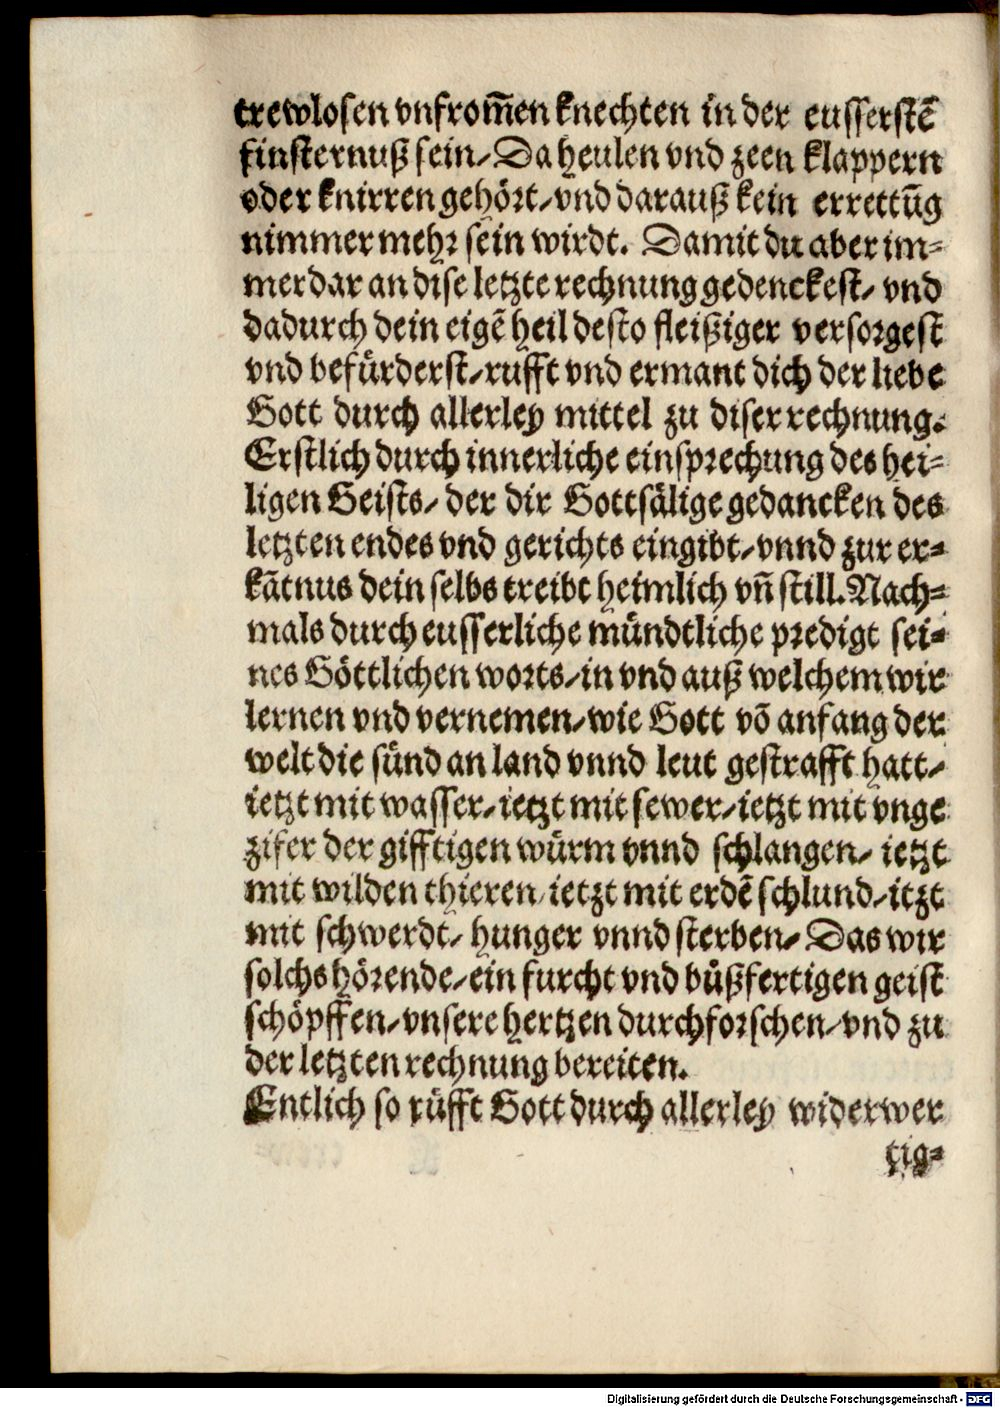 trewlosen vnfrom̃en knechten in der eusserstẽ
finsternuß sein/ Da heulen vnd zeen klappern
oder knirren gehört/ vnd darauß kein errettũg
nimmer mehr sein wirdt. Damit du aber im=
merdar an dise letzte rechnung gedenckest/ vnd
dadurch dein eigẽ heil desto fleißiger versorgest
vnd befürderst/ rufft vnd ermant dich der liebe
Gott durch allerley mittel zu diser rechnung.
Erstlich durch innerliche einsprechung des hei=
ligen Geists/ der dir Gottsälige gedancken des
letzten endes vnd gerichts eingibt/ vnnd zur er=
kãtnus dein selbs treibt heimlich vñ still. Nach=
mals durch eusserliche mündtliche predigt sei=
nes Göttlichen worts/ in vnd auß welchem wir
lernen vnd vernemen/ wie Gott võ anfang der
welt die sünd an land vnnd leut gestrafft hatt/
ietzt mit wasser/ ietzt mit fewer/ ietzt mit vnge
zifer der gifftigen würm vnnd schlangen/ ietzt
mit wilden thieren/ ietzt mit erdẽ schlund/ itzt
mit schwerdt/ hunger vnnd sterben/ Das wir
solchs hörende/ ein furcht vnd bůßfertigen geist
schöpffen/ vnsere hertzen durchforschen/ vnd zu
der letzten rechnung bereiten.
Entlich so růfft Gott durch allerley widerwer
tig=
Digitalisierung gefördert durch die Deutsche Forschungsgemeinschaft - DFG